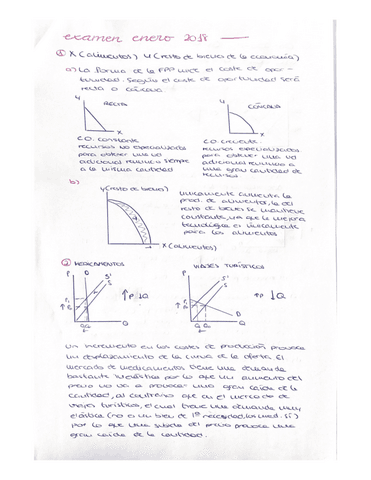 examen enero 2018
① X (alimentos) Y (resto de bienes de la economía)
a) La forma de la FPP mide el coste de opor-
tunidad. Según el coste de oportunidad será
recta o cóncava.
Y
RECTA
X
Y
CÓNCAVA
X
C.O. constante
recursos no especializados
para obtener una ud
adicional renuncio siempre
a la misma cantidad
C.O. creciente
recursos especializados
para obtener una ud
adicional renuncio a
una gran cantidad de
recursos
b)
Y (resto de bienes)
X (alimentos)
únicamente aumenta la
prod. de alimentos, la del
resto de bienes se mantiene
constante, ya que la mejora
tecnológica es únicamente
para los alimentos
② MEDICAMENTOS
P D S' S
↑P ↓Q
Q
VIAJES TURÍSTICOS
P S' S
↑P ↓Q
D
Q
Un incremento en los costes de producción provoca
un desplazamiento de la curva de la oferta. El
mercado de medicamentos tiene una demanda
bastante inelástica por lo que un aumento del
precio no va a provocar una gran caída de la
cantidad, al contrario que en el mercado de
viajes turísticos, el cual tiene una demanda muy
elástica (no es un bien de 1ª necesidad, los med. sí)
por lo que una subida del precio provoca una
gran caída de la cantidad.